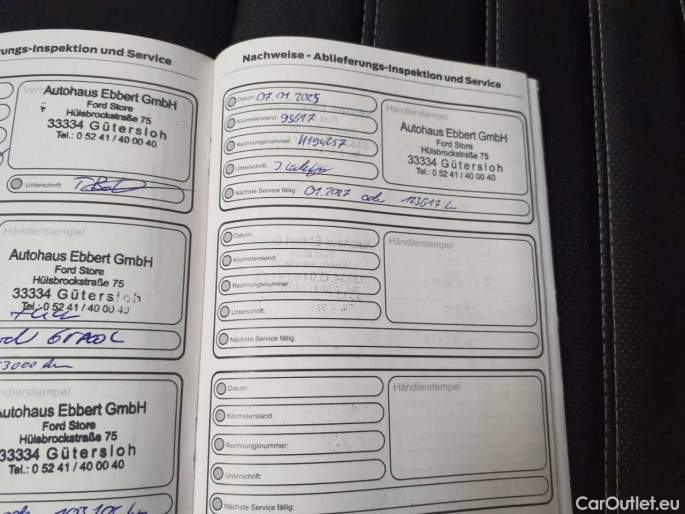 ungs-Inspektion und Service
Autohaus Ebbert GmbH
Ford Store
Hülsbrockstraße 75
33334 Gütersloh
Tel.: 0 52 41 / 40 00 40
Unterschrift:
Händlerstempel
Autohaus Ebbert GmbH
Ford Store
Hülsbrockstraße 75
33334 Gütersloh
Tel.: 0 52 41 / 40 00 40
3000 km
Händlerstempel
Autohaus Ebbert GmbH
Ford Store
Hülsbrockstraße 75
33334 Gütersloh
Tel.: 0 52 41 / 40 00 40
Nachweise - Ablieferungs-Inspektion und Service
Datum: 07.01.2025
Kilometerstand: 93617
Rechnungsnummer: 4194257
Unterschrift:
Nächste Service fällig: 01.2027 oder 123617 km
Händlerstempel
Autohaus Ebbert GmbH
Ford Store
Hülsbrockstraße 75
33334 Gütersloh
Tel.: 0 52 41 / 40 00 40
Datum:
Kilometerstand:
Rechnungsnummer:
Unterschrift:
Nächste Service fällig:
Händlerstempel
Datum:
Kilometerstand:
Rechnungsnummer:
Unterschrift:
Nächste Service fällig:
Händlerstempel
CarOutlet.eu